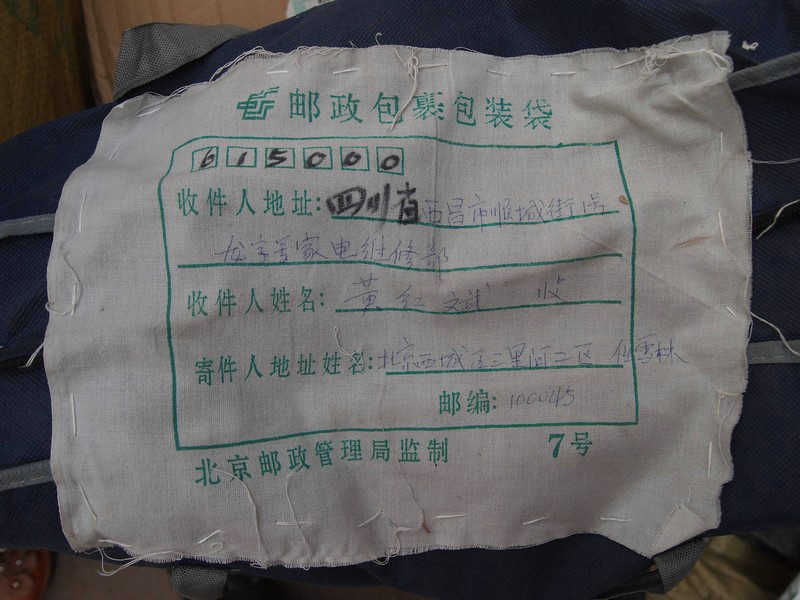 邮政包裹包装袋
615000
收件人地址:四川省西昌市顺城街1号
家电维修部
收件人姓名:黄红斌 收
寄件人地址姓名:北京西城区三里河二区 雪林
邮编:100045
北京邮政管理局监制 7号